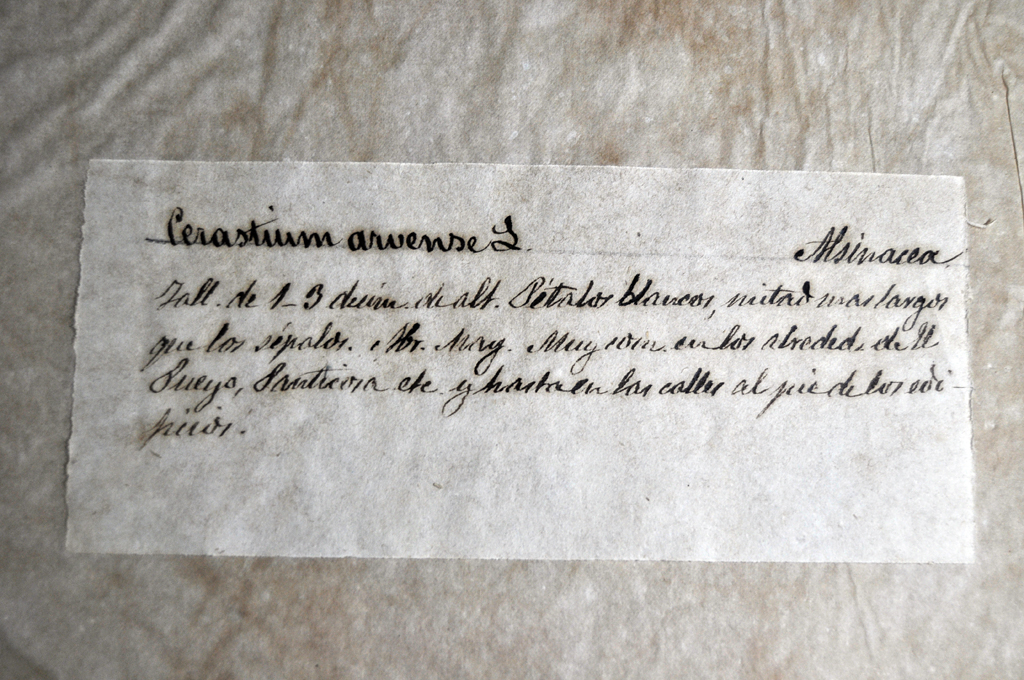 Cerastium arvense L. Alsinacea
Tall. de 1-3 decim. de alt. Pétalos blancos, mitad mas largos
que los sépalos. Abr. May. Muy com. en los alreded. de El
Pueyo, Panticosa etc. y hasta en las calles al pie de los edi-
ficios.